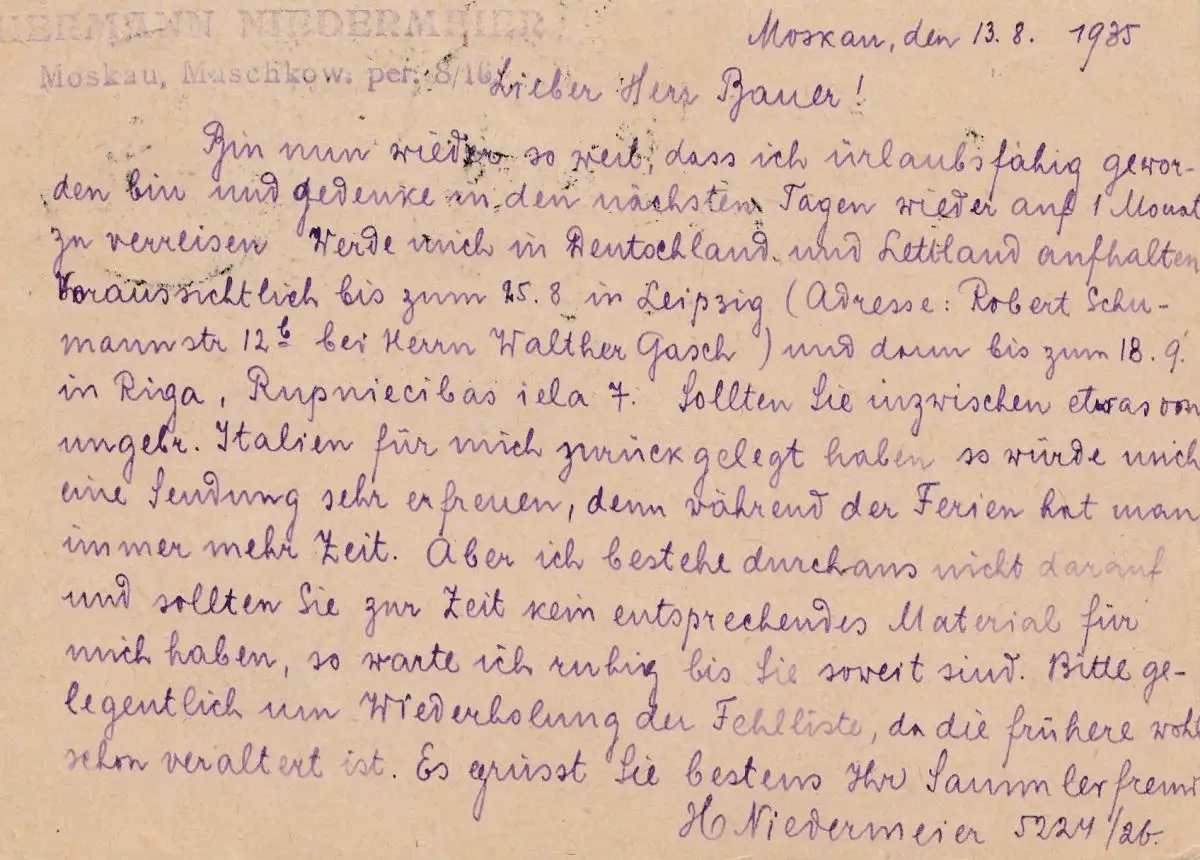 HERMANN NIEDERMEIER
Moskau, den 13. 8. 1935
Moskau, Maschkow. per. 8/16
Lieber Herr Bauer!
Bin nun wieder so weit, dass ich urlaubsfähig gewor-
den bin und gedenke in den nächsten Tagen wieder auf 1 Monat
zu verreisen Werde mich in Deutschland und Lettland aufhalten
Voraussichtlich bis zum 25. 8 in Leipzig (Adresse: Robert Schu-
mannstr 12b bei Herrn Walther Gasch) und dann bis zum 18. 9.
in Riga, Rupniecibas iela 7. Sollten Sie inzwischen etwas von
ungebr. Italien für mich zurückgelegt haben so würde mich
eine Sendung sehr erfreuen, denn während der Ferien hat man
immer mehr Zeit. Aber ich bestehe durchaus nicht darauf
und sollten Sie zur Zeit kein entsprechendes Material für
mich haben, so warte ich ruhig bis Sie soweit sind. Bitte ge-
legentlich um Wiederholung der Fehlliste, da die frühere wohl
schon veraltert ist. Es grüsst Sie bestens Ihr Sammlerfreund
H Niedermeier 5224/26.